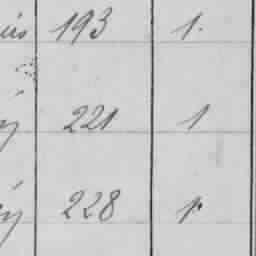 193 1.
221 1
228 1.